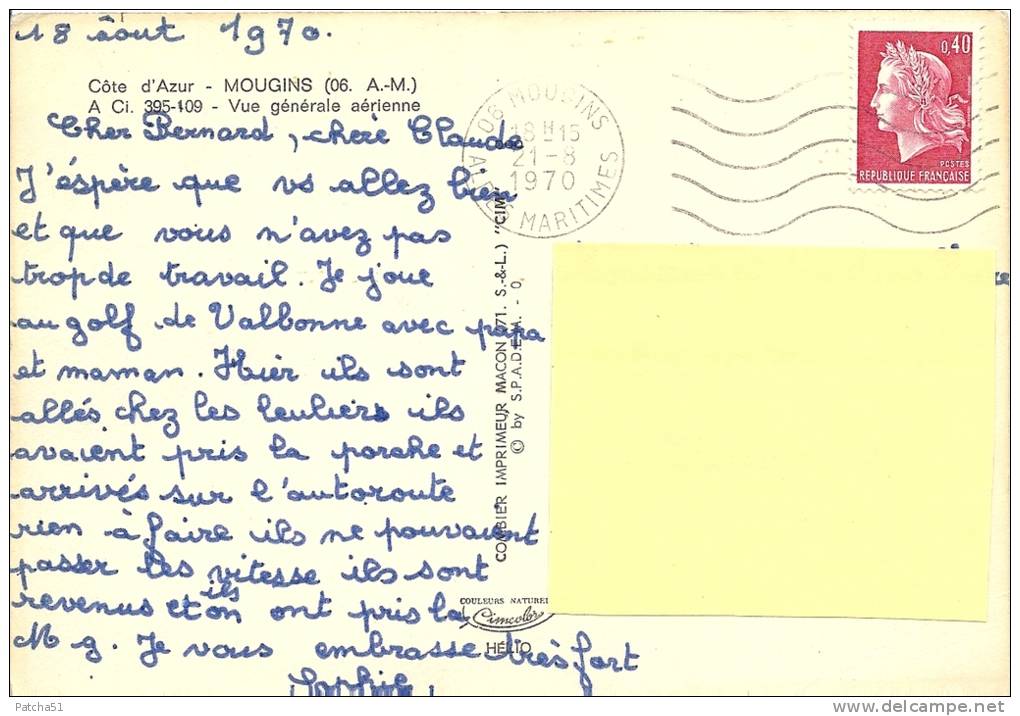 18 âout 1970.
Côte d'Azur - MOUGINS (06. A.-M.)
A Ci. 395-109 - Vue générale aérienne
Cher Bernard, chère Claude
J'éspère que vs allez bien
et que vous n'avez pas
trop de travail. Je joue
au golf de Valbonne avec papa
et maman. Hier ils sont
allés chez les leuliers ils
avaient pris la porche et
arrivés sur l'autoroute
rien à faire ils ne pouvaient
passer les vitesse ils sont
revenus et on ils ont pris la
M g. Je vous embrasse très fort
Sophie
06 MOUGINS
18 H 15
21-8
1970
ALPES MARITIMES
0,40
POSTES
REPUBLIQUE FRANÇAISE
COMBIER IMPRIMEUR MACON (71. S.-&-L.) "CIM"
© by S.P.A.D.E.M. -
COULEURS NATUREL
Cimcolor
HÉLIO
Patcha51
delcampe.net